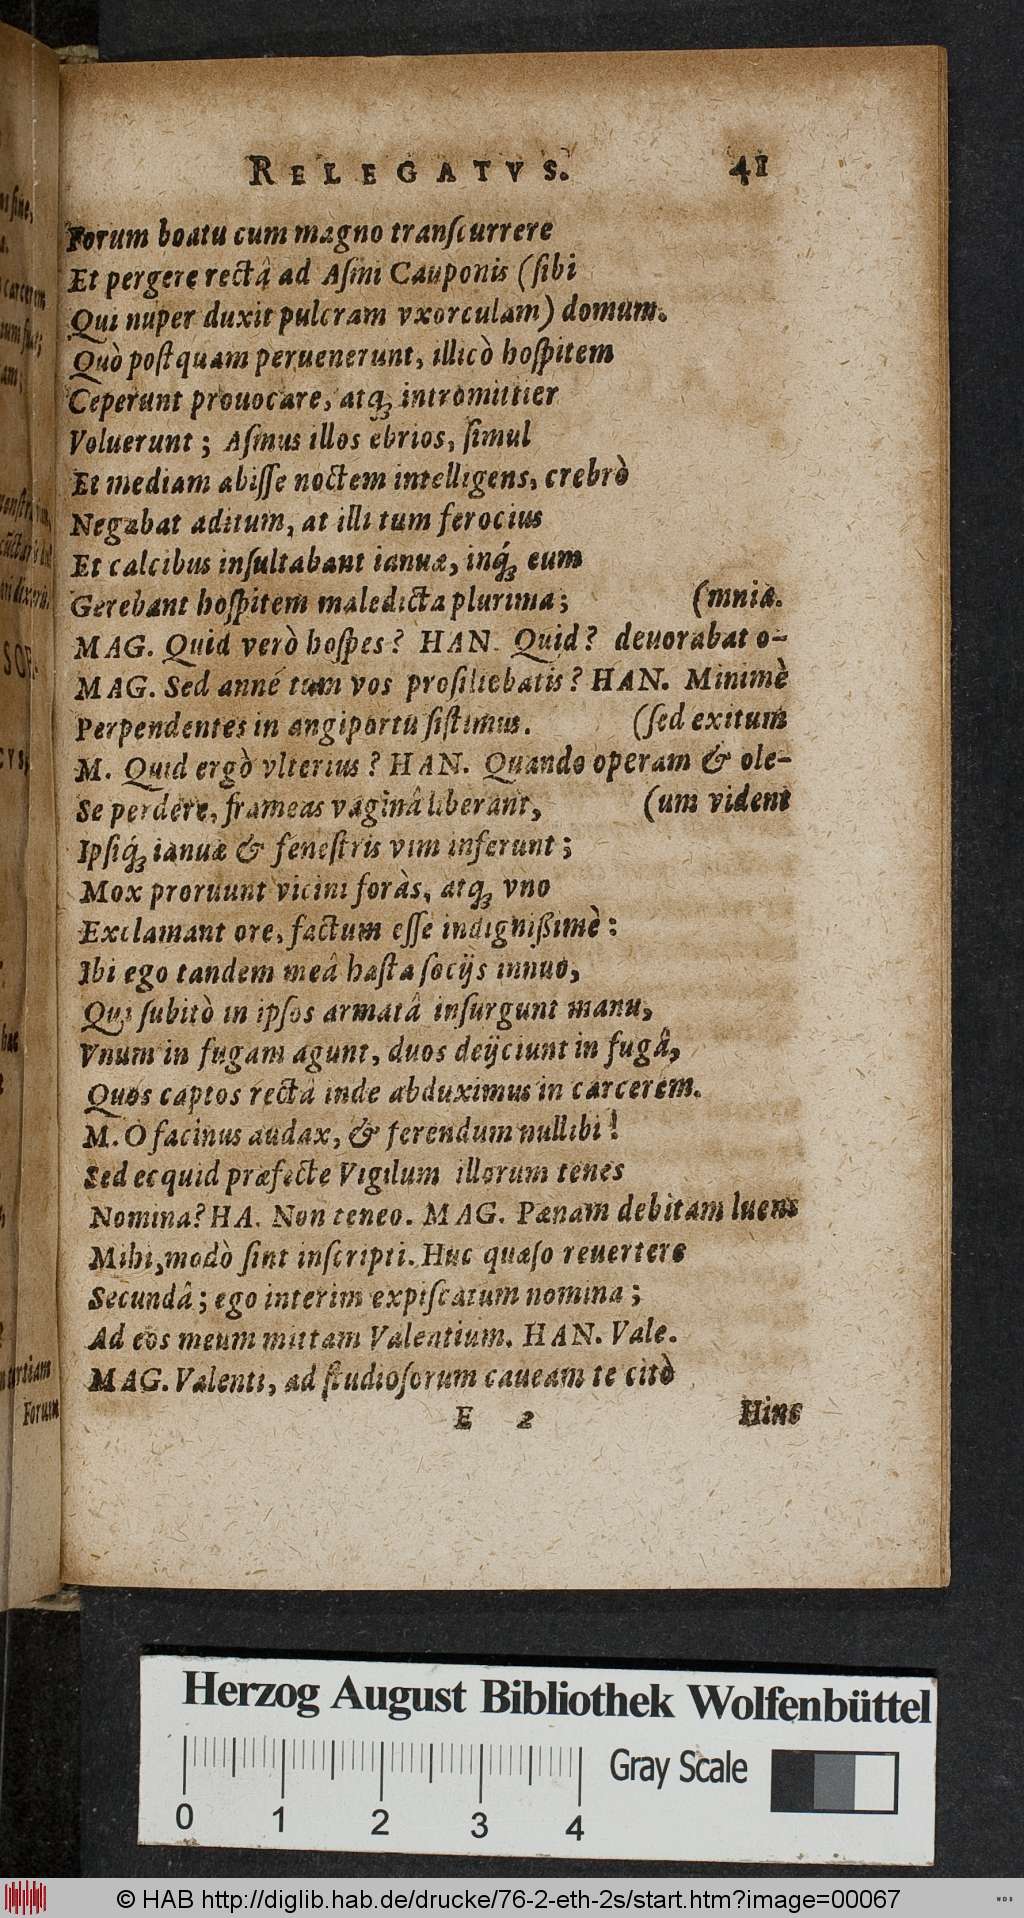 RELEGATVS. 41
Forum boatu cum magno tranſcurrere
Et pergere rectâ ad Aſini Cauponis (ſibi
Qui nuper duxit pulcram vxorculam) domum.
Quò poſtquam peruenerunt, illicò hoſpitem
Ceperunt prouocare, atq́; intromittier
Voluerunt; Aſinus illos ebrios, ſimul
Et mediam abiſſe noctem intelligens, crebrò
Negabat aditum, at illi tum ferocius
Et calcibus inſultabant ianuæ, inq́; eum
Gerebant hoſpitem maledicta plurima; (mnia.
MAG. Quid verò hoſpes? HAN. Quid? deuorabat o-
MAG. Sed anné tum vos proſiliebatis? HAN. Minimè
Perpendentes in angiportu ſiſtimus. (ſed exitum
M. Quid ergò vlterius? HAN. Quando operam & ole-
Se perdere, frameas vaginâ liberant, (um vident
Ipſiq́; ianuæ & feneſtris vim inferunt;
Mox proruunt vicini foràs, atq; vno
Exclamant ore, factum eſſe indignißimè:
Ibi ego tandem meâ haſta ſocijs innuo,
Qui ſubitò in ipſos armatâ inſurgunt manu,
Vnum in fugam agunt, duos deijciunt in fugâ,
Quos captos rectâ inde abduximus in carcerem.
M. O facinus audax, & ferendum nullibi!
Sed ecquid præfecte Vigilum illorum tenes
Nomina? HA. Non teneo. MAG. Pœnam debitam luens
Mihi, modò ſint inſcripti. Huc quæſo reuertere
Secundâ; ego interim expiſcatum nomina;
Ad eos meum mittam Valentium. HAN. Vale.
MAG. Valenti, ad ſtudioſorum caueam te citò
E 2 Hinc
Forum
Herzog August Bibliothek Wolfenbüttel
Gray Scale
0 1 2 3 4
© HAB http://diglib.hab.de/drucke/76-2-eth-2s/start.htm?image=00067